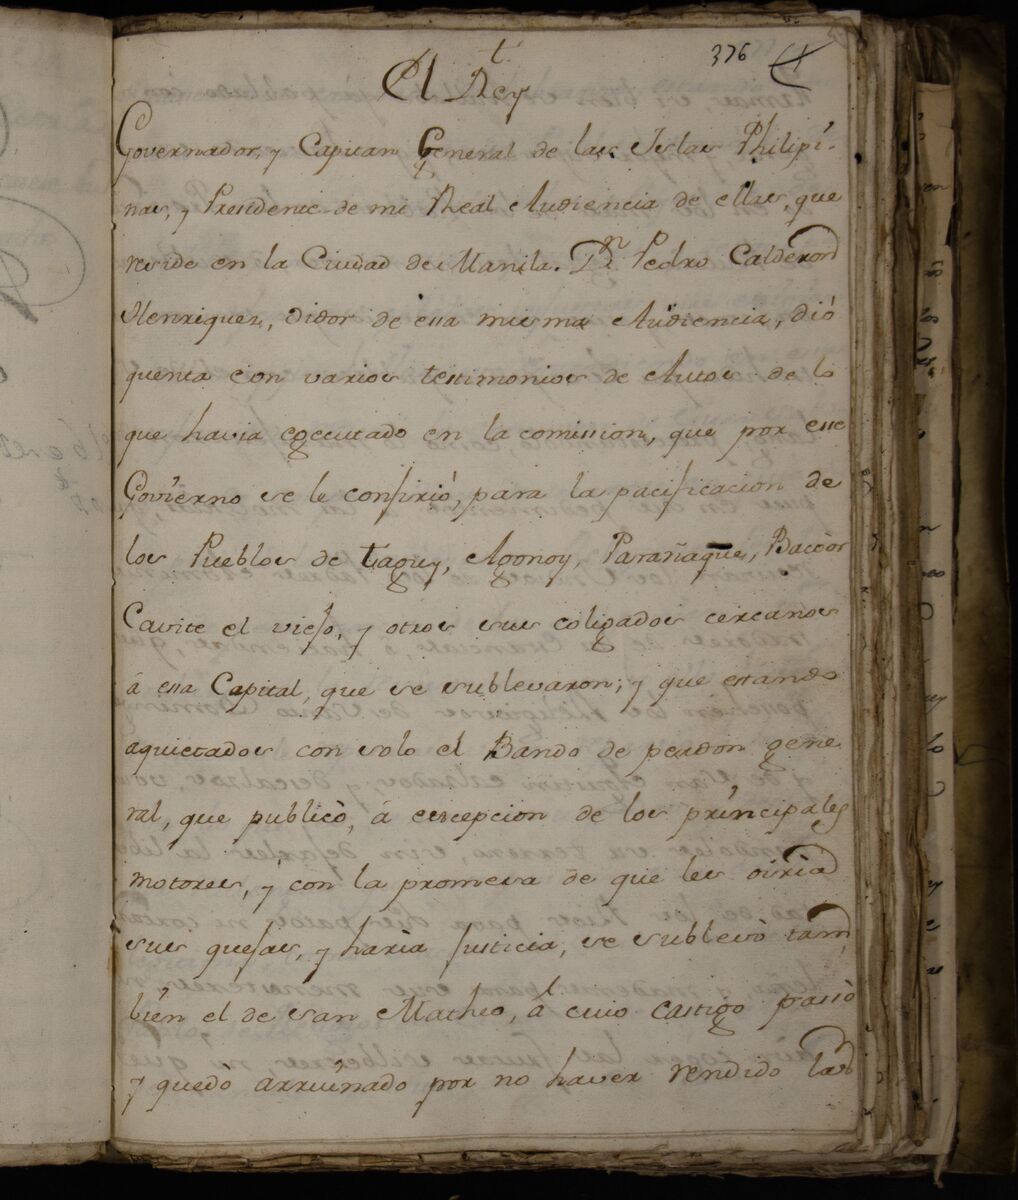 376
El Rey
Governador, y Capitan General de las Islas Philipi-
nas, y Presidente de mi Real Audiencia de ellas, que
reside en la Ciudad de Manila. Dn Pedro Calderon
Henriquez, Oidor de essa misma Audiencia, dió
quenta con varios testimonios de Autos de lo
que havia egecutado en la comission, que por esse
Govierno se le confirió, para la pacificacion de
los Pueblos de Taguy, Agonoy, Parañaque, Bacòor
Cavite el viejo, y otros sus coligados cercanos
á essa Capital, que se sublevaron; y que estando
aquietados con solo el Bando de perdon gene
ral, que publicò, á excepcion de los principales
motores, y con la promesa de que les oiria
sus quejas, y haria Justicia, se sublevò tam
bien el de San Matheo, á cuio castigo passò
y quedo arruinado por no haver rendido la